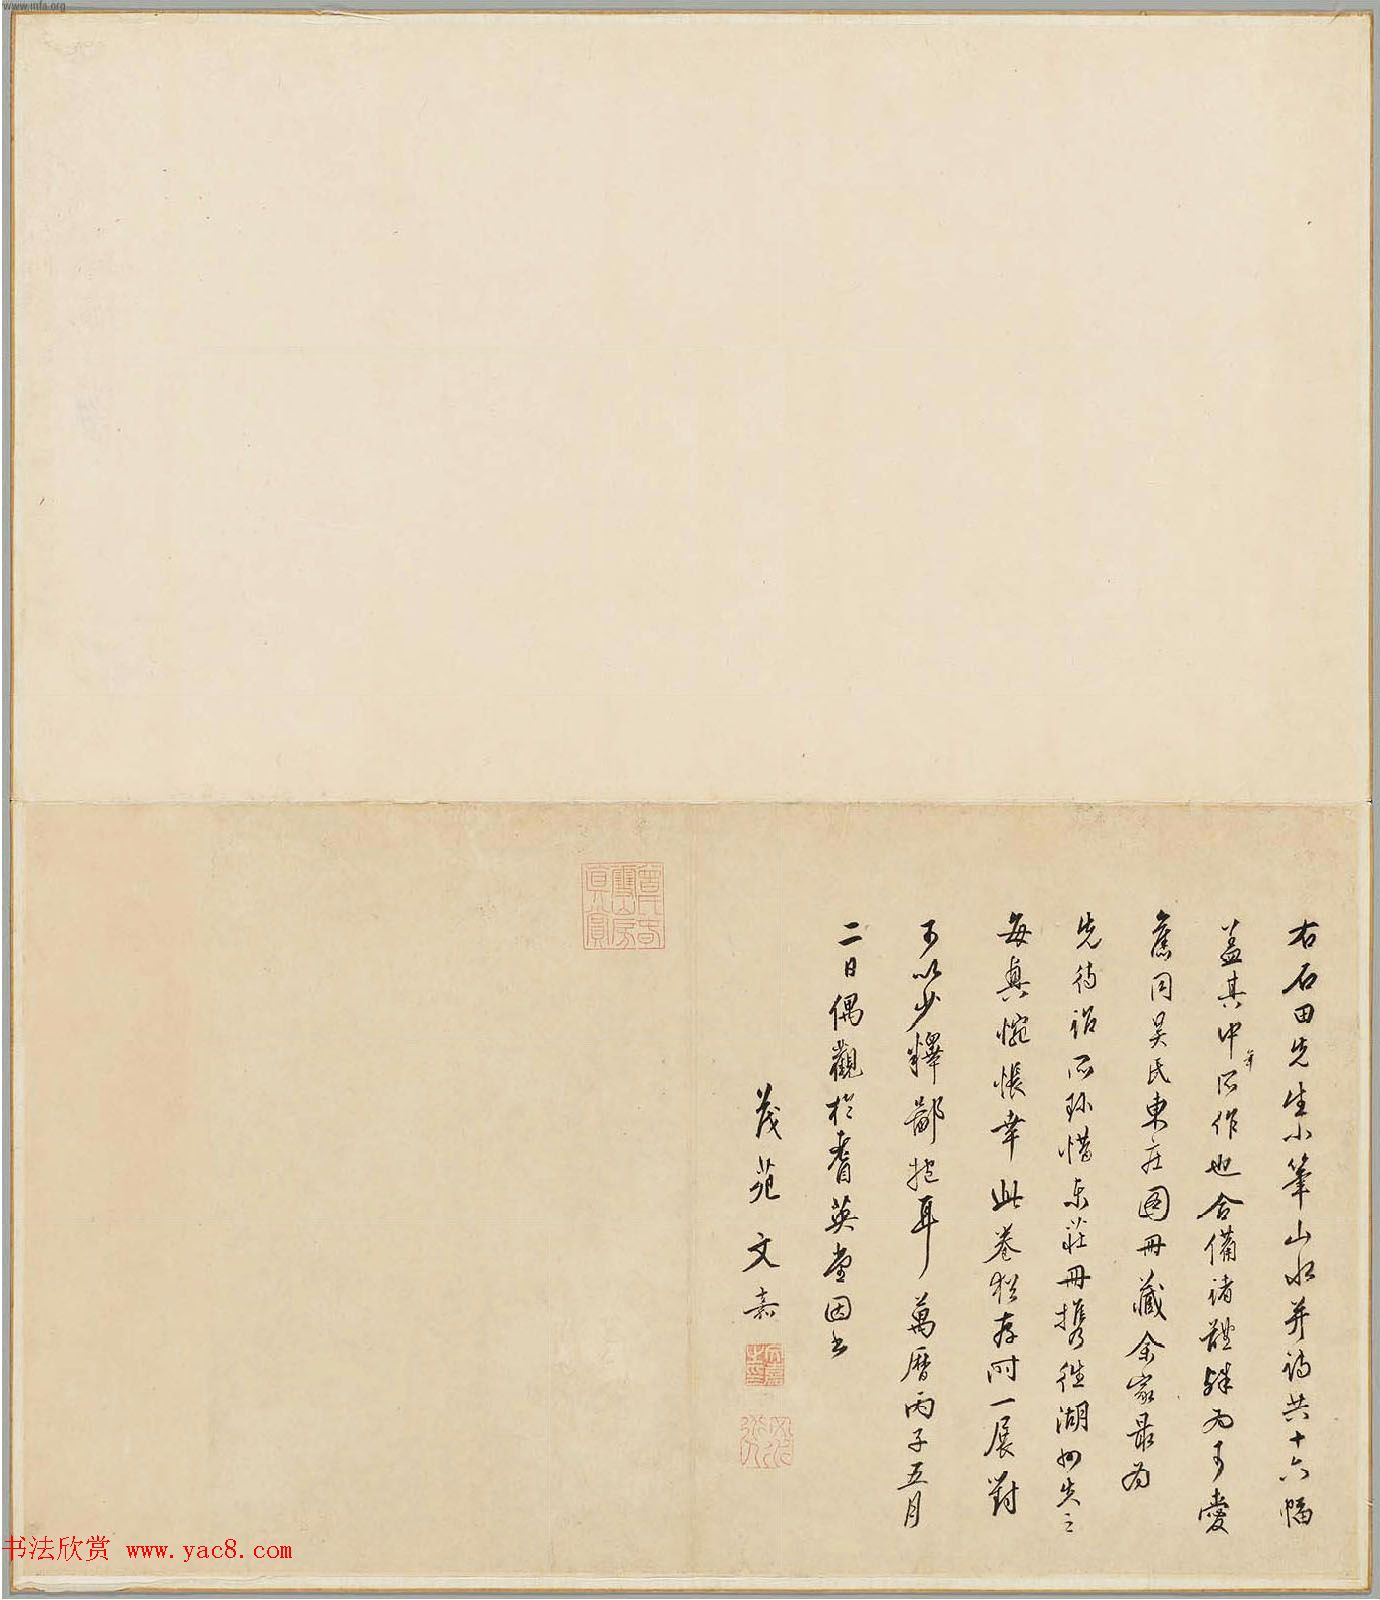 www.mfa.org
右石田先生小筆山水并詩共十六幅
蓋其中年所作也合備諸體殊為可愛
舊同吴氏東庄圖冊藏余家最為
先待詔所珎惜東莊冊携往湖州失之
每眞惋悵幸此卷猶存时一展對
可以少釋鄙抱耳萬曆丙子五月
二日偶觀於耆英堂因書
茂苑文嘉
书法欣赏 www.yac8.com